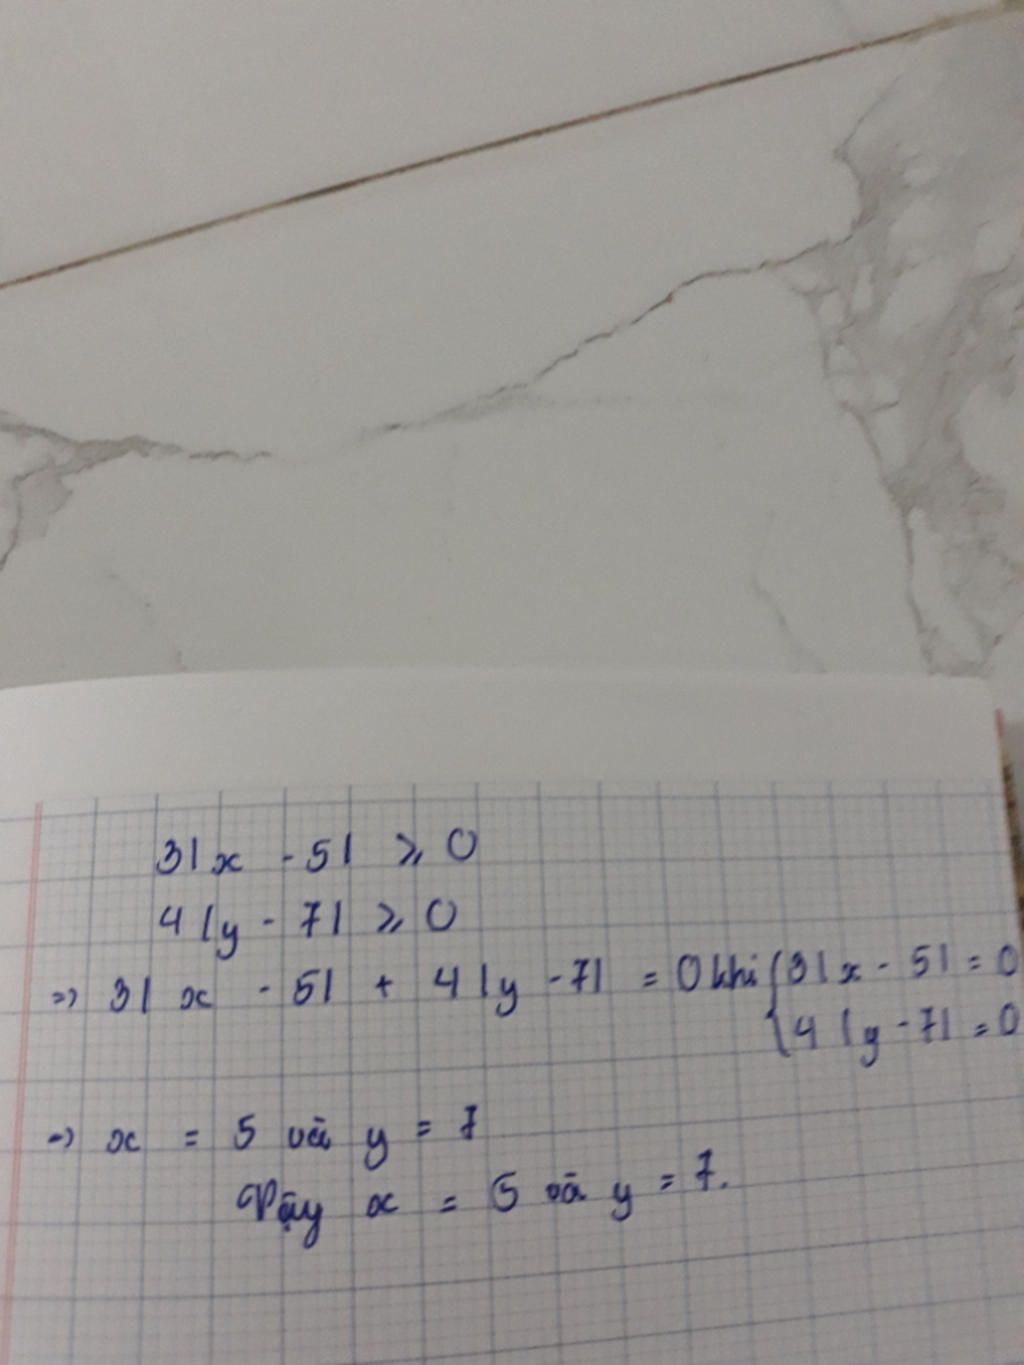 3|x - 5| ⩾ 0
4|y - 7| ⩾ 0
=> 3|x - 5| + 4|y - 7| = 0 khi { 3|x - 5| = 0
4|y - 7| = 0
=> x = 5 và y = 7
Vậy x = 5 và y = 7.